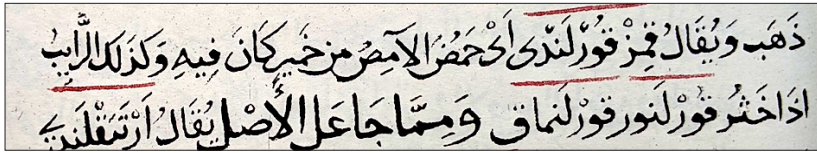 ذَهَب وَيُقَالُ قِمِزْ قُورْلَنْدى اَىْ حَمُضَ الآمِصُ مِن خَمِيرٍ كَانَ فِيهِ وَكَذَلِكَ الرَّايِبُ
اِذَا خَثُرَ قورْلَنور قورْلَنماق وَمِمَّا جَا عَلَى الأَصْلِ يُقَالُ